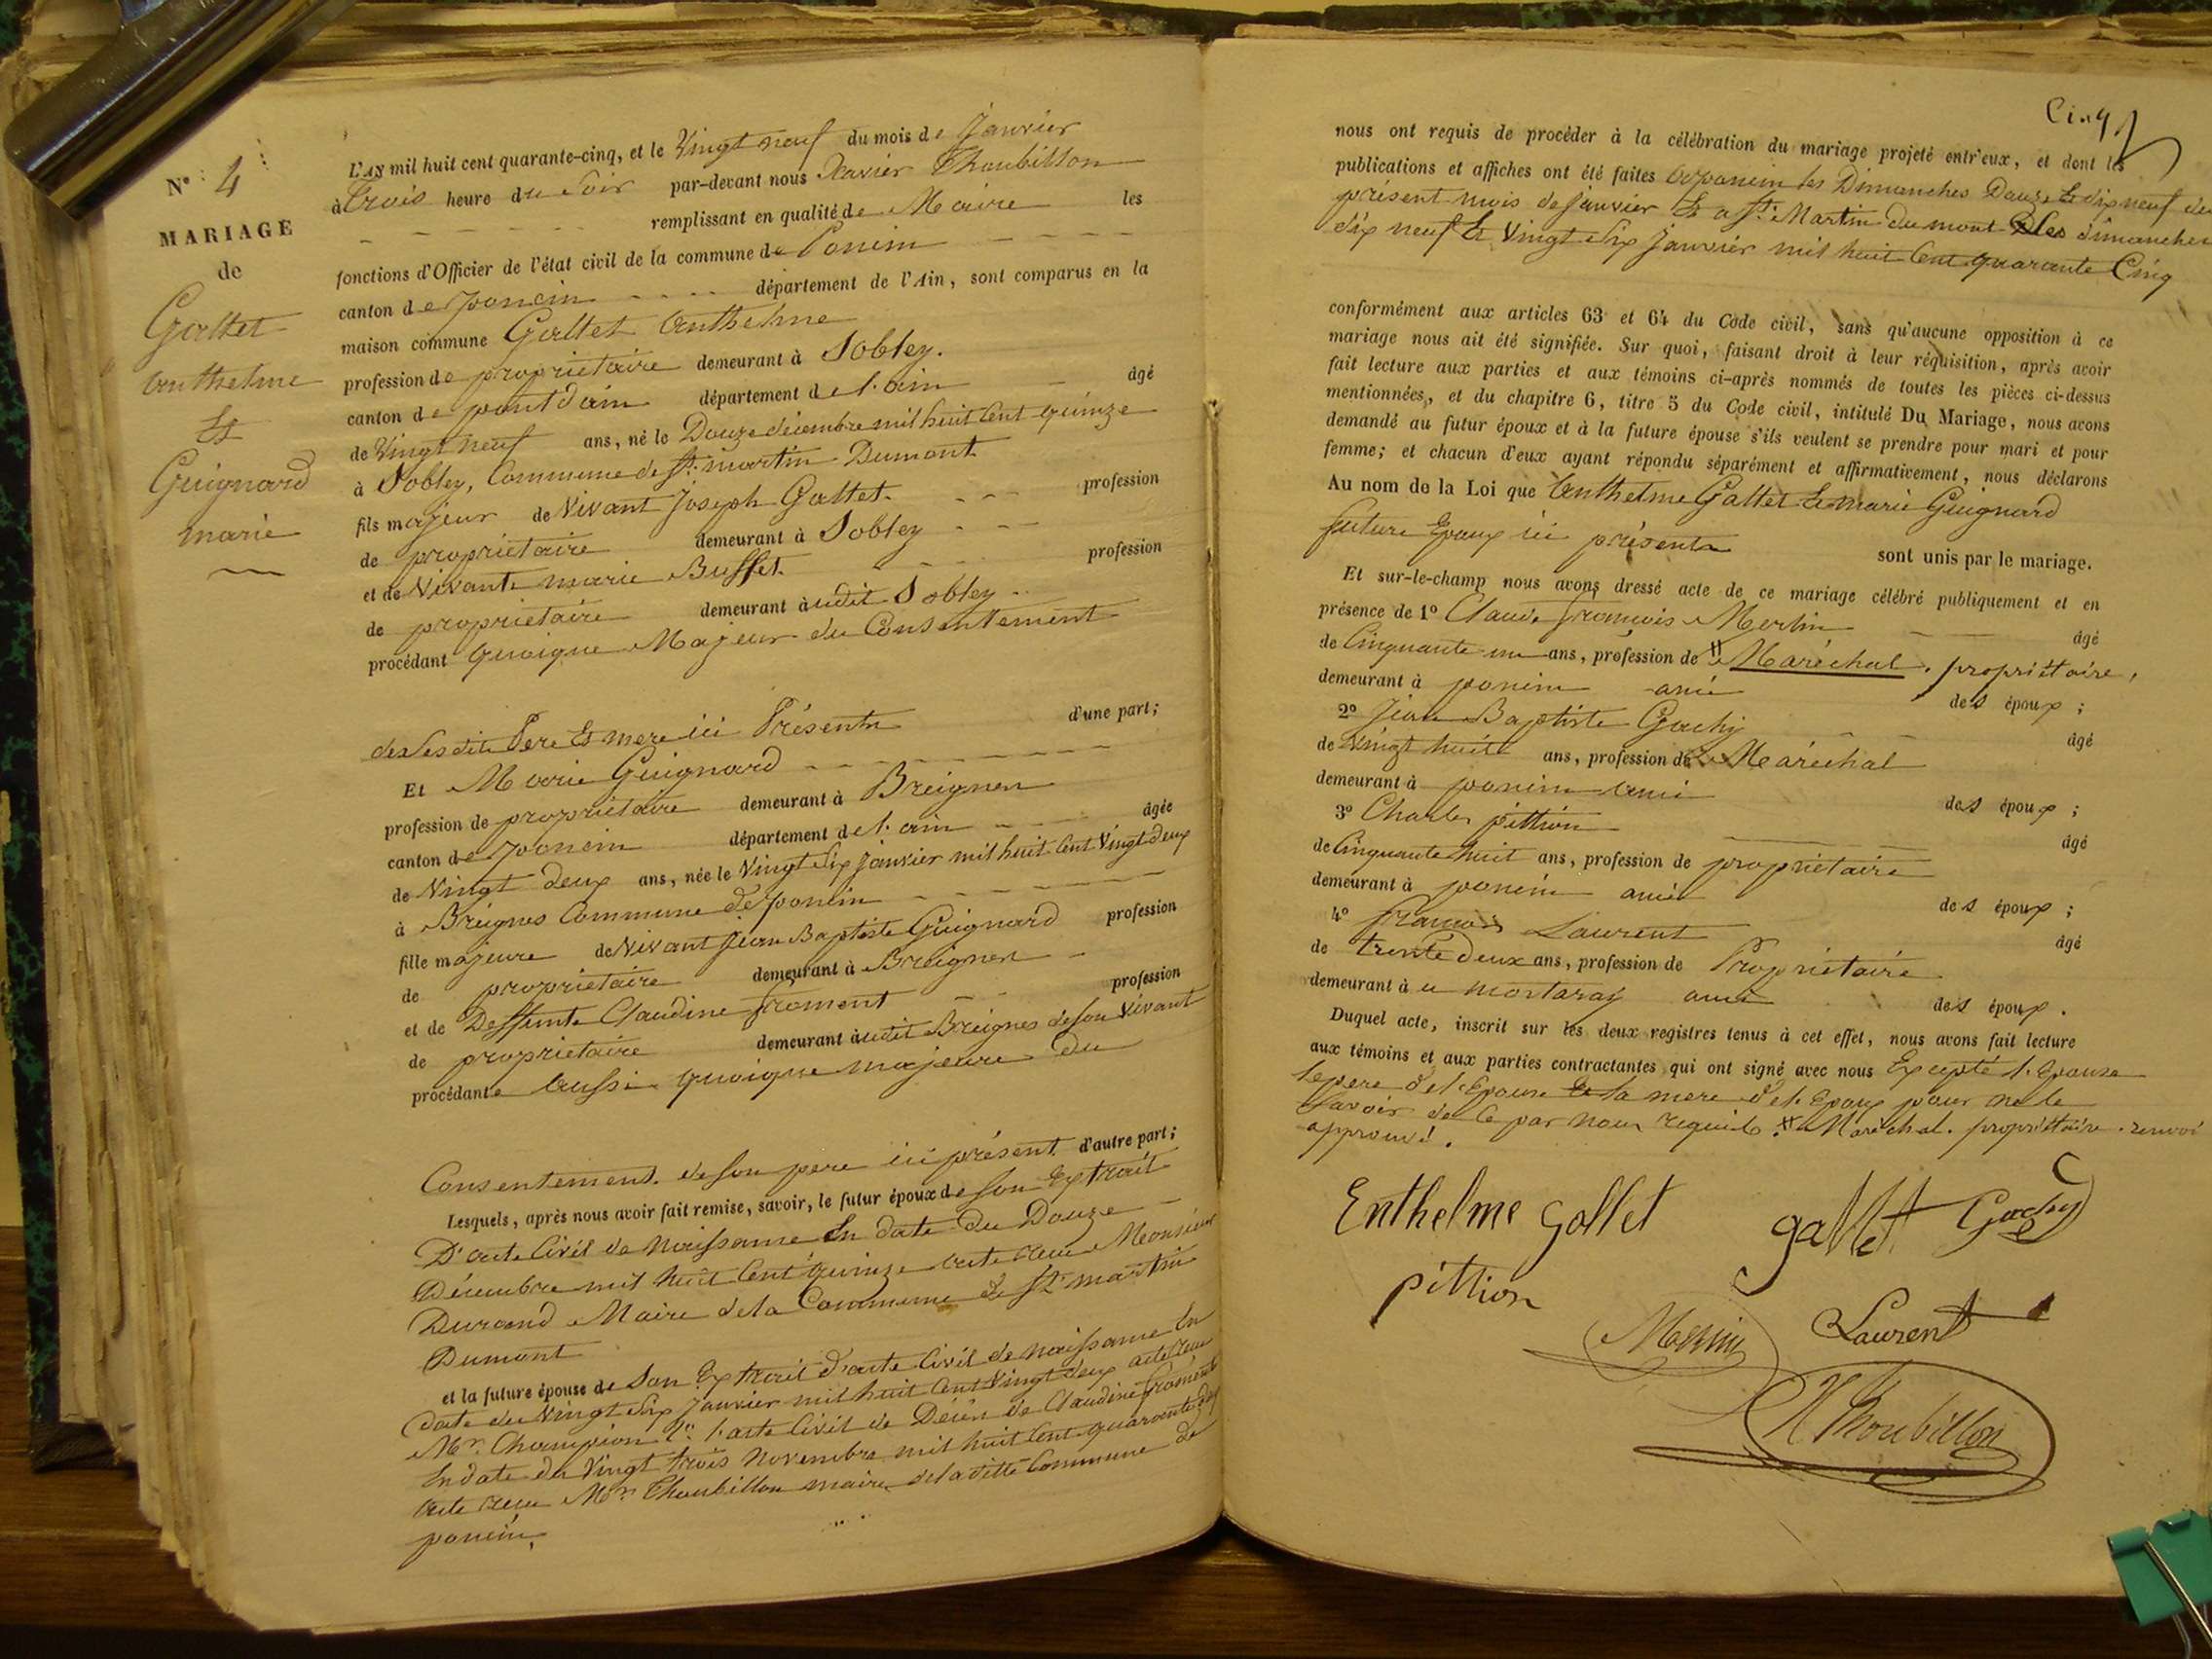 N° 4
MARIAGE
de
Gallet
Anthelme
Et
Guignard
marie
L'AN mil huit cent quarante-cinq, et le Vingt neuf du mois de Janvier
à Trois heure du Soir par-devant nous Xavier Thoubillon
remplissant en qualité de Maire les
fonctions d'Officier de l'état civil de la commune de Poncin
canton de poncin département de l'Ain, sont comparus en la
maison commune Gallet Anthelme
profession de propriétaire demeurant à Sobley.
canton de pontdain département de l'ain âgé
de Vingt neuf ans, né le Douze décembre mil huit Cent quinze
à Sobley, Commune de St. martin Dumont
fils majeur de Vivant Joseph Gallet. profession
de propriétaire demeurant à Sobley
et de Vivante marie Buffet. profession
de propriétaire demeurant àudit Sobley
procédant quoique Majeur du Consentement
des Sesdits Pere Et mere ici Présents d'une part;
Et Marie Guignard
profession de propriétaire demeurant à Breignes
canton de poncin département de l'ain âgée
de Vingt deux ans, née le Vingt Six janvier mil huit Cent Vingt deux
à Breignes Commune de poncin
fille majeure de Vivant Jean Baptiste Guignard profession
de propriétaire demeurant à Breignes
et de Deffunte Claudine froment profession
de propriétaire demeurant àudit Breignes de son Vivant
procédante Aussi quoique majeure du
Consentement de Son pere ici présent d'autre part;
Lesquels, après nous avoir fait remise, savoir, le futur époux de Son Extrait
D'acte Civil de Naissance En date du Douze
Décembre mil huit Cent quinze acte reçu Monsieur
Durand Maire de la Commune de St martin
Dumont
et la future épouse de Son Extrait d'acte Civil de naissance En
date du Vingt Six Janvier mil huit Cent Vingt deux acte reçu
Mr. Champion 2° l'acte Civil de Décès de Claudine froment
En date du Vingt trois Novembre mil huit Cent quarante deux
acte reçu Mr. Thoubillon maire de la ditte Commune de
poncin.
Cinq
nous ont requis de procéder à la célébration du mariage projeté entr'eux, et dont les
publications et affiches ont été faites à poncin les Dimanches Douze Et dix neuf du
présent mois de janvier Et a St. Martin du mont les dimanches
dix neuf Et Vingt Six janvier mil huit Cent quarante Cinq
conformément aux articles 63 et 64 du Code civil, sans qu'aucune opposition à ce
mariage nous ait été signifiée. Sur quoi, faisant droit à leur réquisition, après avoir
fait lecture aux parties et aux témoins ci-après nommés de toutes les pièces ci-dessus
mentionnées, et du chapitre 6, titre 5 du Code civil, intitulé Du Mariage, nous avons
demandé au futur époux et à la future épouse s'ils veulent se prendre pour mari et pour
femme; et chacun d'eux ayant répondu séparément et affirmativement, nous déclarons
Au nom de la Loi que Anthelme Gallet Et marie Guignard
future Epoux ici présents sont unis par le mariage.
Et sur-le-champ nous avons dressé acte de ce mariage célébré publiquement et en
présence de 1° Claude françois Merlin âgé
de Cinquante un ans, profession de Maréchal. propriétaire,
demeurant à poncin ami des époux;
2° Jean Baptiste Gachy âgé
de Vingt huit ans, profession de Maréchal
demeurant à poncin ami des époux;
3° Charles pittion âgé
de Cinquante huit ans, profession de propriétaire
demeurant à poncin ami des époux;
4° françois Laurent âgé
de trente deux ans, profession de Propriétaire
demeurant à a mortaray ami des époux.
Duquel acte, inscrit sur les deux registres tenus à cet effet, nous avons fait lecture
aux témoins et aux parties contractantes qui ont signé avec nous Excepté l'Epouse
le pere de l'Epouse Et la mere de l'Epoux pour ne le
Savoir de Ce par nous requis. Maréchal. propriétaire. renvoi
approuvé.
Enthelme gollet
gallet
Gachy
pittion
Merlin
Laurent
X Thoubillon